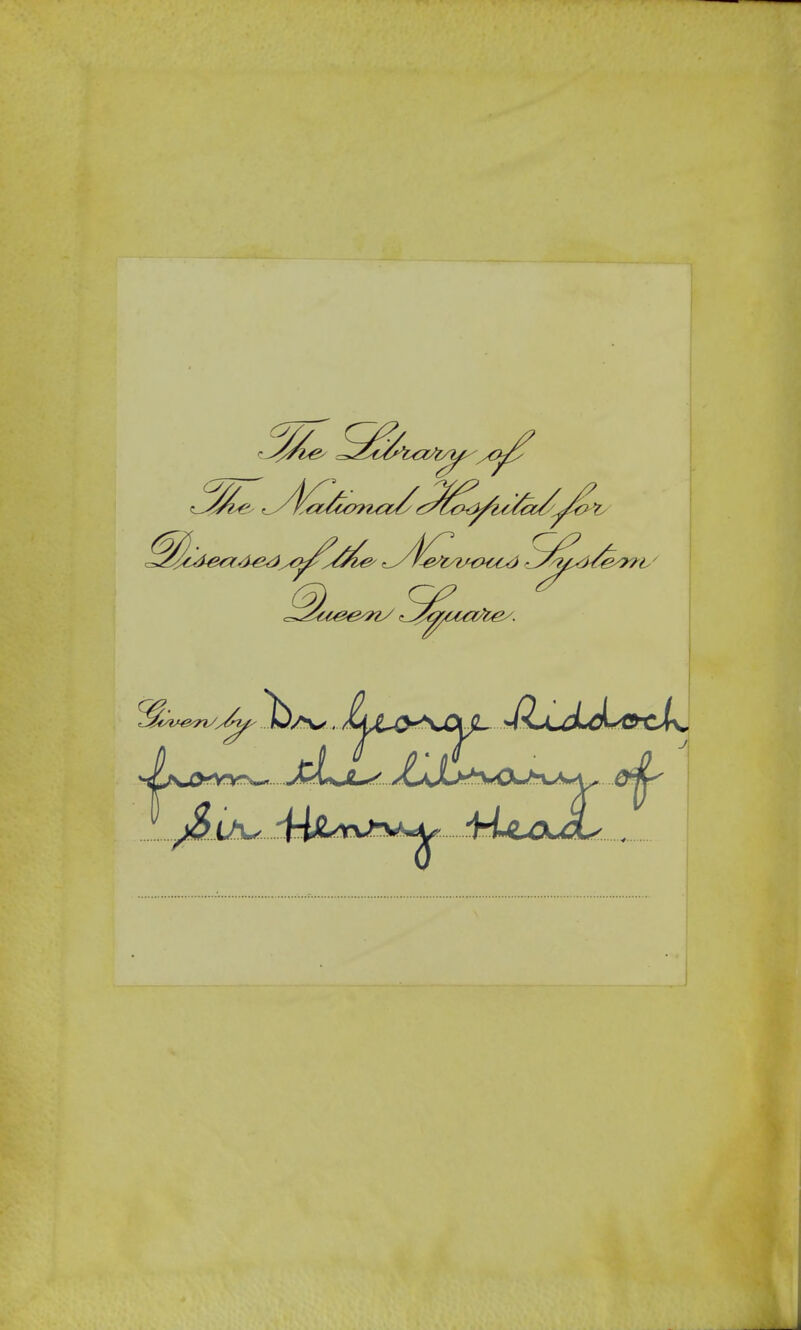 The Library of
The National Hospital for
Diseases of the Nervous System
Queen Square.
Given by Dr. George Riddoch,
from the Library of
Sir Henry Head.